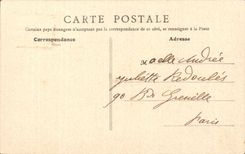 CARTE POSTALE
Certains pays étrangers n'acceptent pas la correspondance de ce côté, se renseigner à la Poste
Correspondance
Adresse
Melle Andrée
Juliette Redoulés
90 Bd Grenelle
Paris